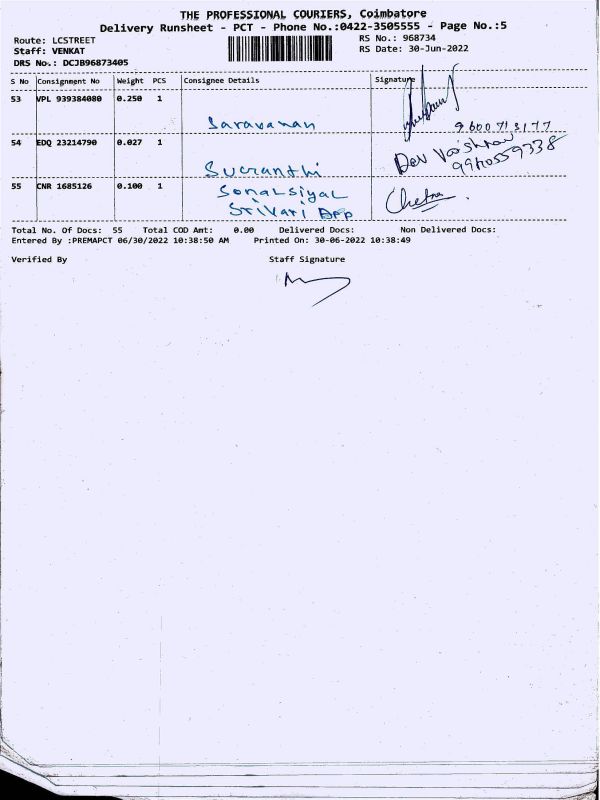 THE PROFESSIONAL COURIERS, Coimbatore
Delivery Runsheet - PCT - Phone No.:0422-3505555 - Page No.:5
Route: LCSTREET RS No.: 968734
Staff: VENKAT RS Date: 30-Jun-2022
DRS No.: DCJB96873405
S No Consignment No Weight PCS Consignee Details Signature
53 VPL 939384080 0.250 1
Saravanan 9600713177
54 EDQ 23214790 0.027 1 Dev Vaishnav
9940559338
55 CNR 1685126 0.100 1 Sonalsiyal Chetna
Srivari App
Total No. Of Docs: 55 Total COD Amt: 0.00 Delivered Docs: Non Delivered Docs:
Entered By :PREMAPCT 06/30/2022 10:38:50 AM Printed On: 30-06-2022 10:38:49
Verified By Staff Signature